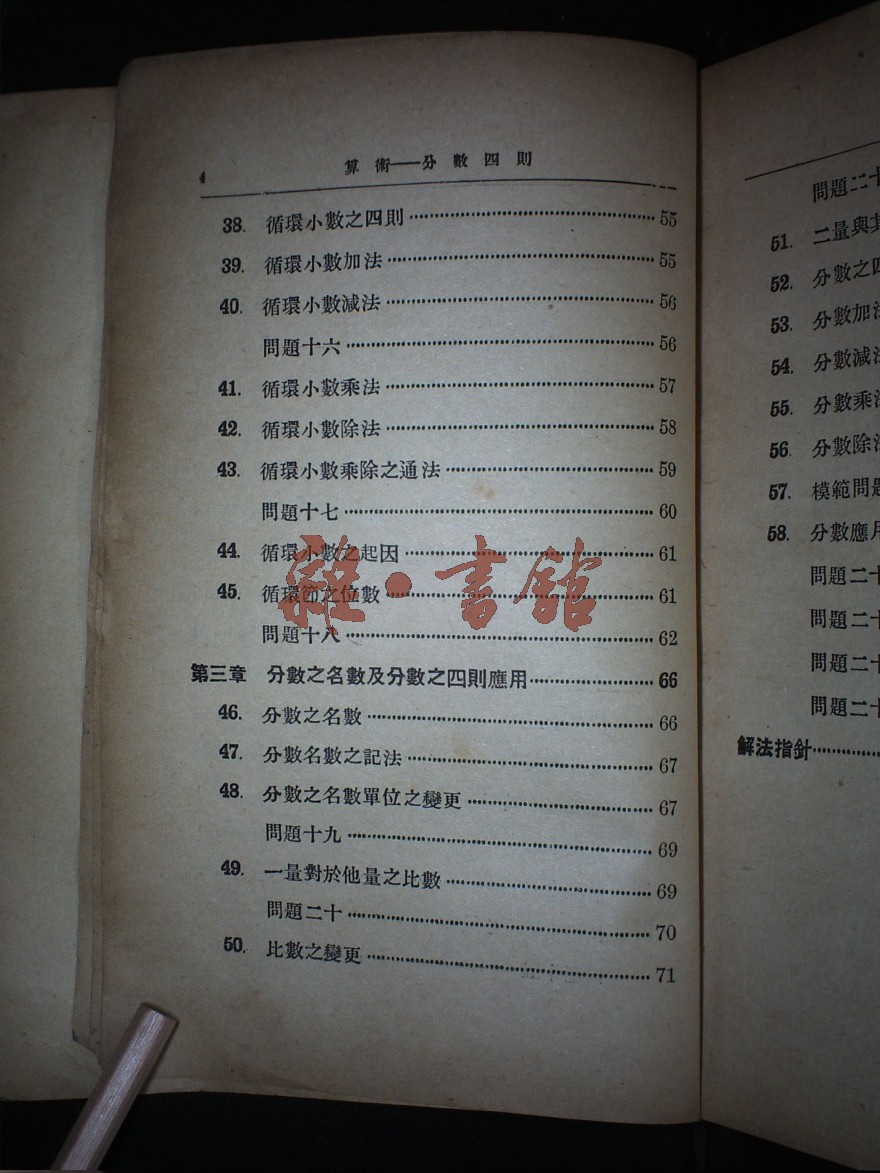 4 算術——分數四則
38. 循環小數之四則 55
39. 循環小數加法 55
40. 循環小數減法 56
問題十六 56
41. 循環小數乘法 57
42. 循環小數除法 58
43. 循環小數乘除之通法 59
問題十七 60
44. 循環小數之起因 61
45. 循環節之位數 61
問題十八 62
第三章 分數之名數及分數之四則應用 66
46. 分數之名數 66
47. 分數名數之記法 67
48. 分數之名數單位之變更 67
問題十九 69
49. 一量對於他量之比數 69
問題二十 70
50. 比數之變更 71
雜·書館
問題二十
51. 二量與其
52. 分數之四
53. 分數加法
54. 分數減法
55. 分數乘法
56. 分數除法
57. 模範問題
58. 分數應用
問題二十
問題二十
問題二十
問題二十
解法指針